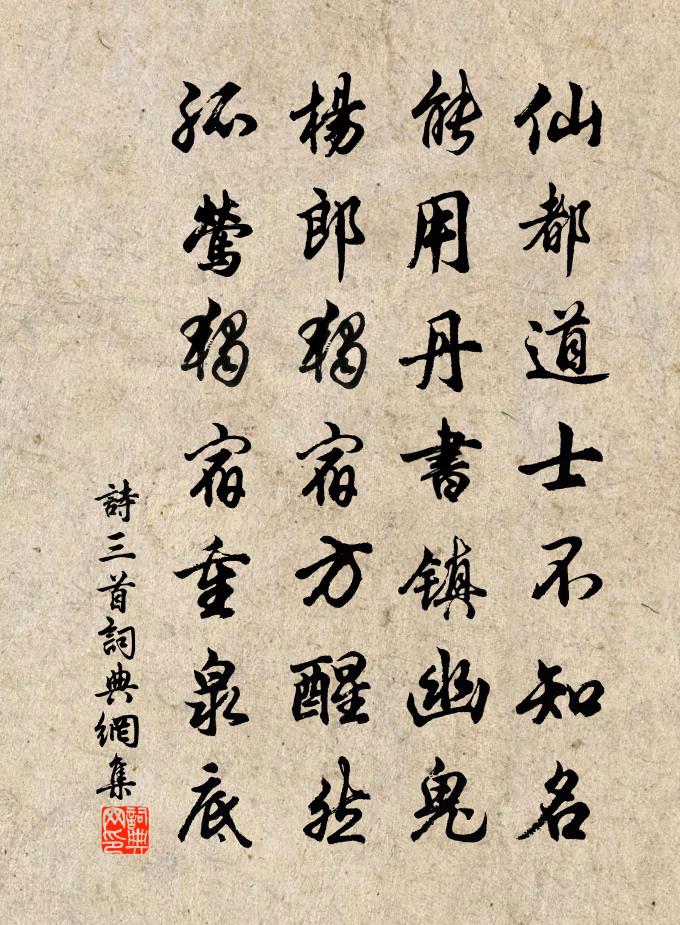 仙都道士不知名
能用丹書镇幽鬼
楊郎獨宿方醒然
孤鶯獨宿重泉底
詩三首詞典網集
詞典網印